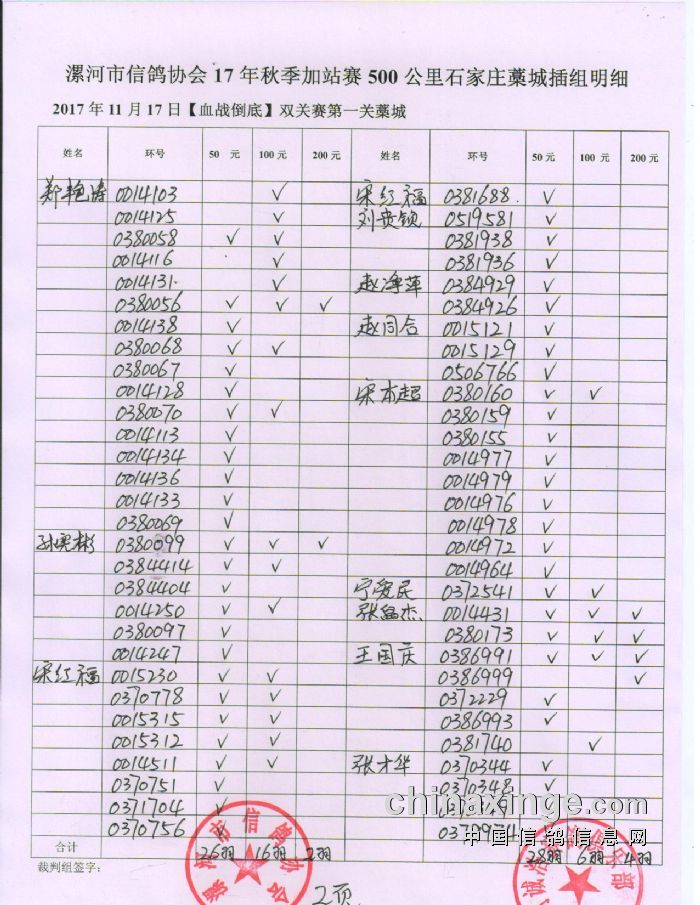 漯河市信鸽协会 17 年秋季加站赛 500 公里石家庄藁城插组明细
2017 年 11 月 17 日【血战倒底】双关赛第一关藁城
姓名 环号 50 元 100 元 200 元 姓名 环号 50 元 100 元 200 元
郑艳涛 0014103 ✓ 宋红福 0381688 ✓
0014125 ✓ 刘贵锁 0519581 ✓
0380058 ✓ ✓ 0381938 ✓
0014116 ✓ 0381936 ✓
0014131 ✓ 赵净萍 0384929 ✓
0380056 ✓ ✓ ✓ 0384926 ✓
0014138 ✓ 赵同合 0015121 ✓
0380068 ✓ ✓ 0015129 ✓
0380067 ✓ 0506766 ✓
0014128 ✓ 宋本超 0380160 ✓ ✓
0380070 ✓ ✓ 0380159 ✓
0014113 ✓ 0380155 ✓
0014134 ✓ 0014977 ✓
0014136 ✓ 0014979 ✓
0014133 ✓ 0014976 ✓
0380069 ✓ 0014978 ✓
0380099 ✓ ✓ ✓ 0014972 ✓
0384414 ✓ ✓ 0014964 ✓
0384404 ✓ 宁爱民 0372541 ✓ ✓
0014250 ✓ ✓ 0014431 ✓ ✓ ✓
0380097 ✓ 0380173 ✓ ✓ ✓
0014247 ✓ 王国庆 0386991 ✓ ✓ ✓
宋红福 0015230 ✓ ✓ 0386999 ✓
0370778 ✓ ✓ 0372229 ✓
0015315 ✓ ✓ 0386993 ✓
0015312 ✓ ✓ 0381740 ✓
0014511 ✓ ✓ 张才华 0370344 ✓
0370751 ✓ 0370348 ✓
0371704 ✓
0370756 ✓
chinaxinge.com
中国信鸽信息网
合计 26羽 16羽 2羽 28羽 6羽 4羽
裁判组签字：
市信鸽协会
2页